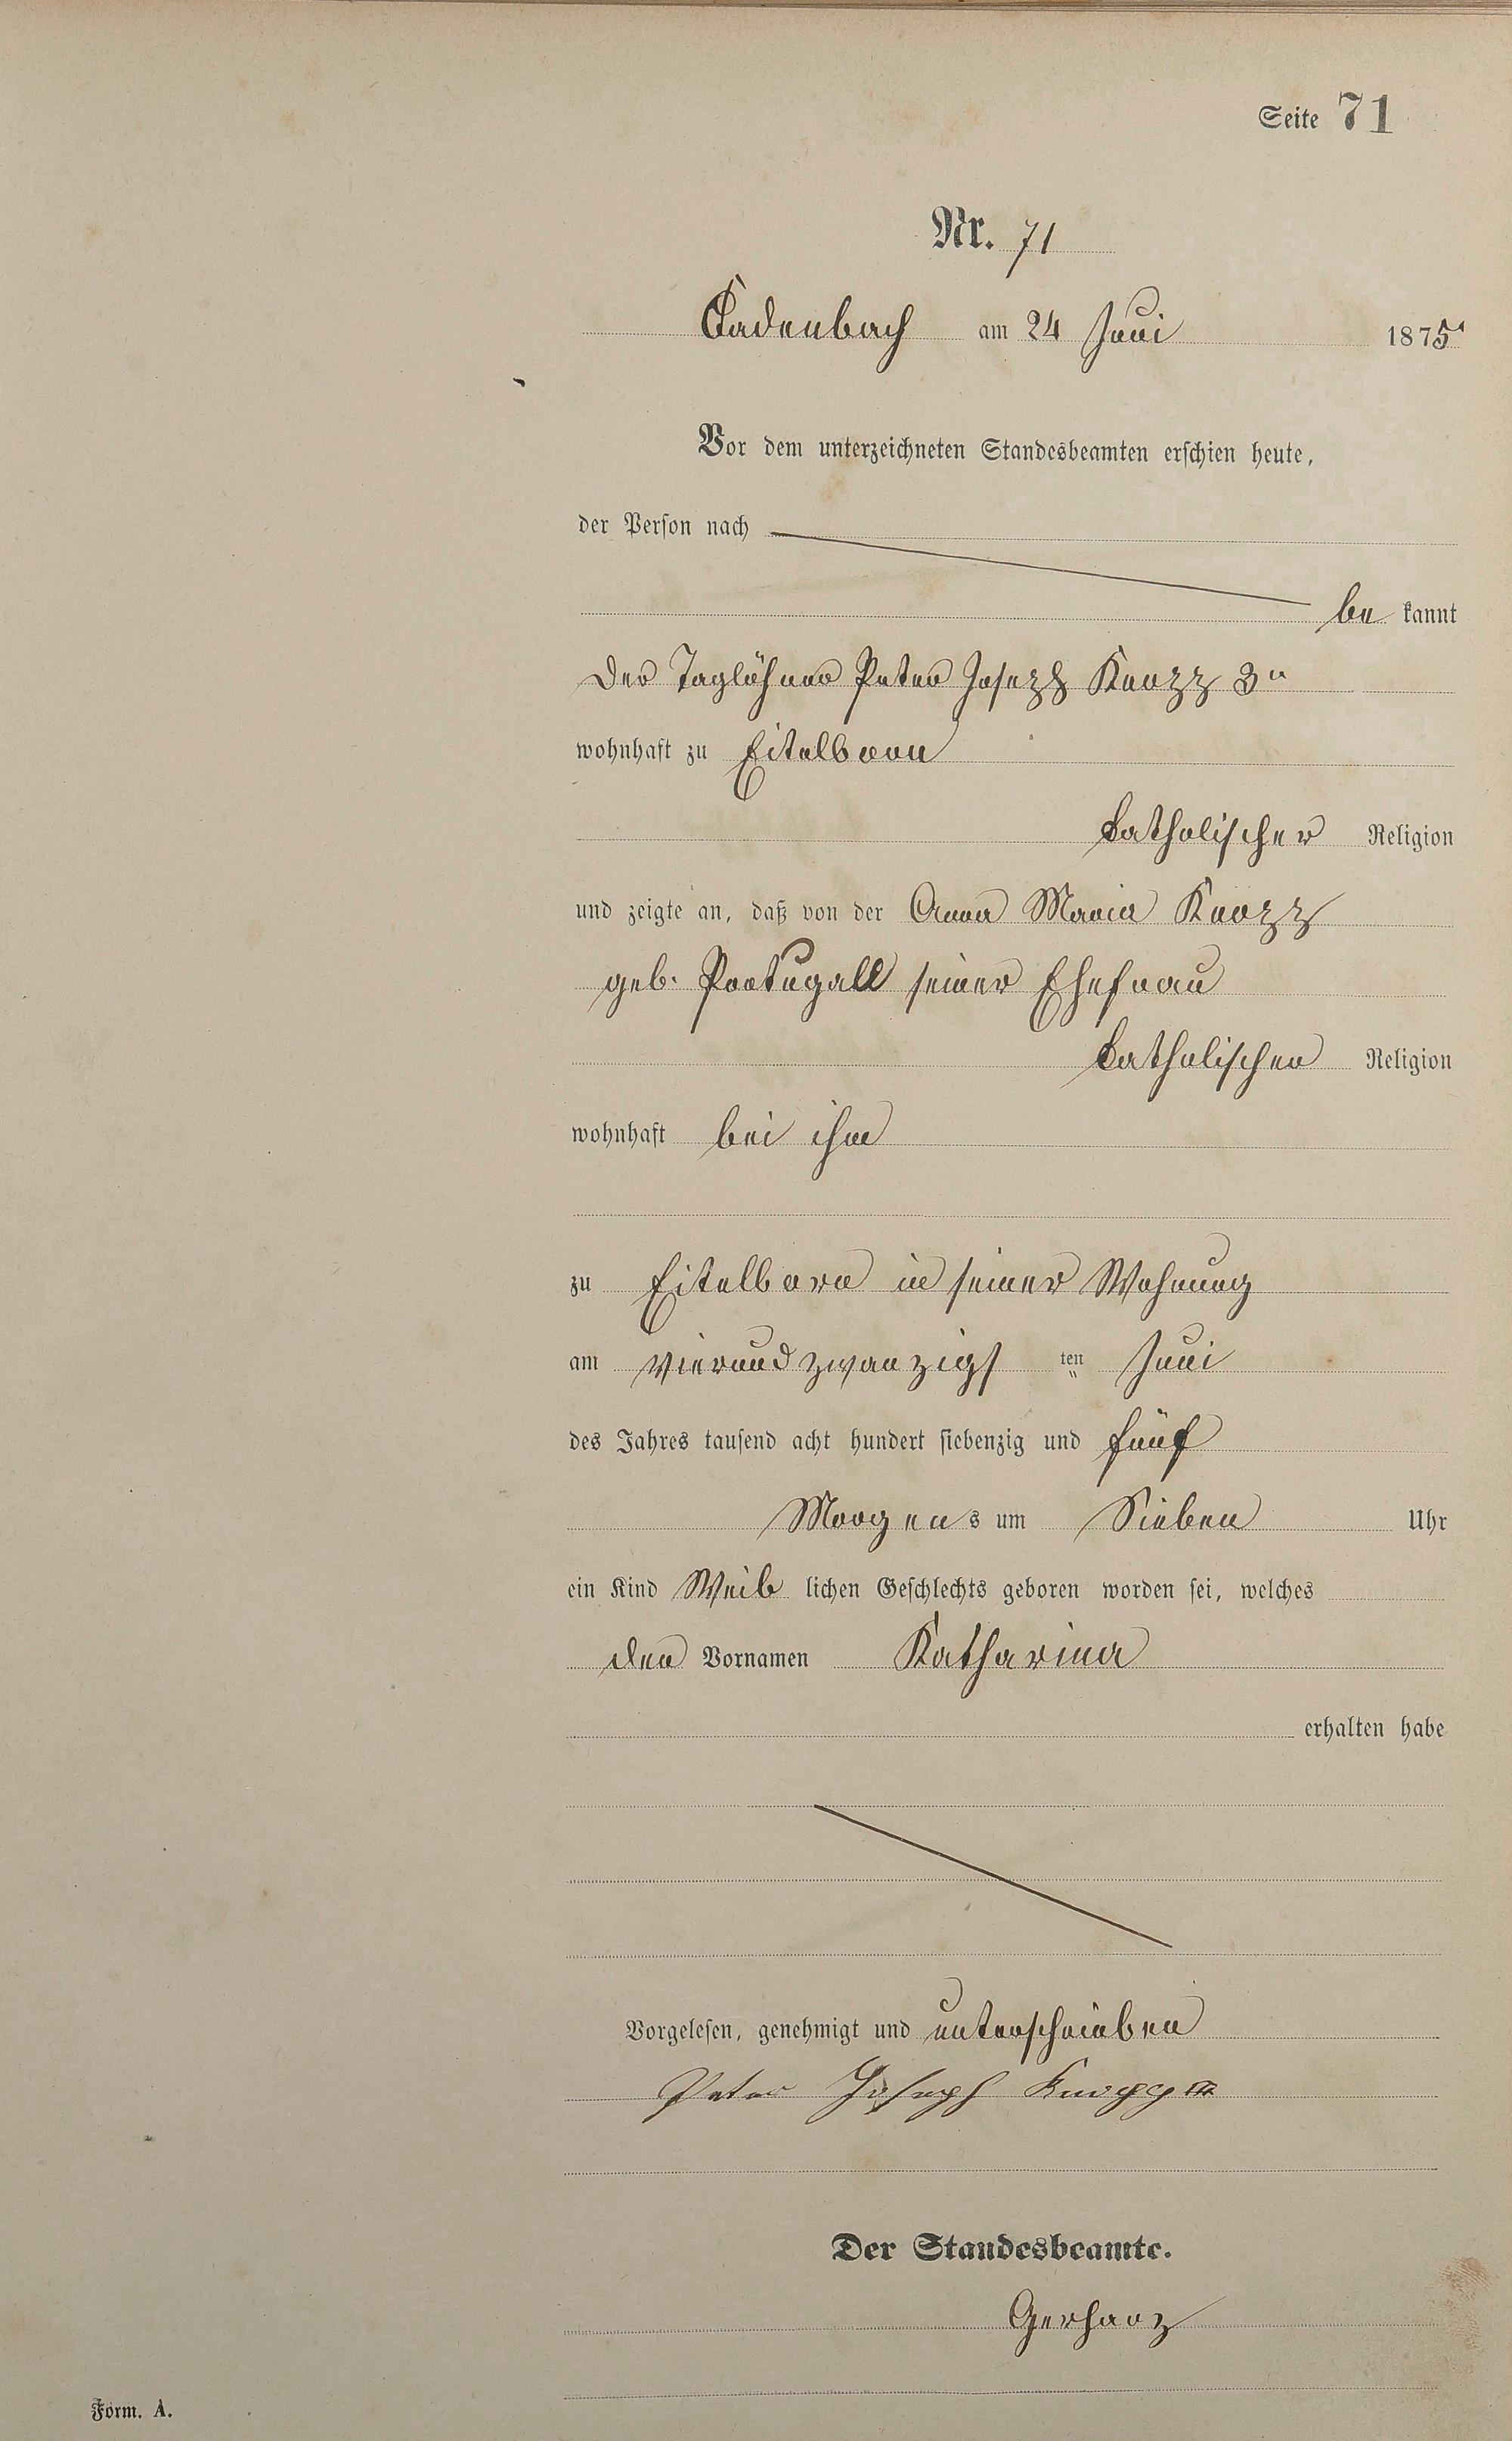 Seite 71
Nr. 71
Cadenbach am 24 Juni 1875
Vor dem unterzeichneten Standesbeamten erschien heute,
der Person nach
be kannt
der Taglöhner Peter Joseph Knopp 3r
wohnhaft zu Eitelborn
katholischer Religion
und zeigte an, daß von der Anna Maria Knopp
geb. Portugall seiner Ehefrau
katholischer Religion
wohnhaft bei ihm
zu Eitelborn in seiner Wohnung
am vierundzwanzigs ten Juni
des Jahres tausend acht hundert siebenzig und fünf
Morgens um Sieben Uhr
ein Kind Weib lichen Geschlechts geboren worden sei, welches
den Vornamen Katharina
erhalten habe
Vorgelesen, genehmigt und unterschrieben
Peter Joseph Knopp III
Der Standesbeamte.
Gerharz
Form. A.